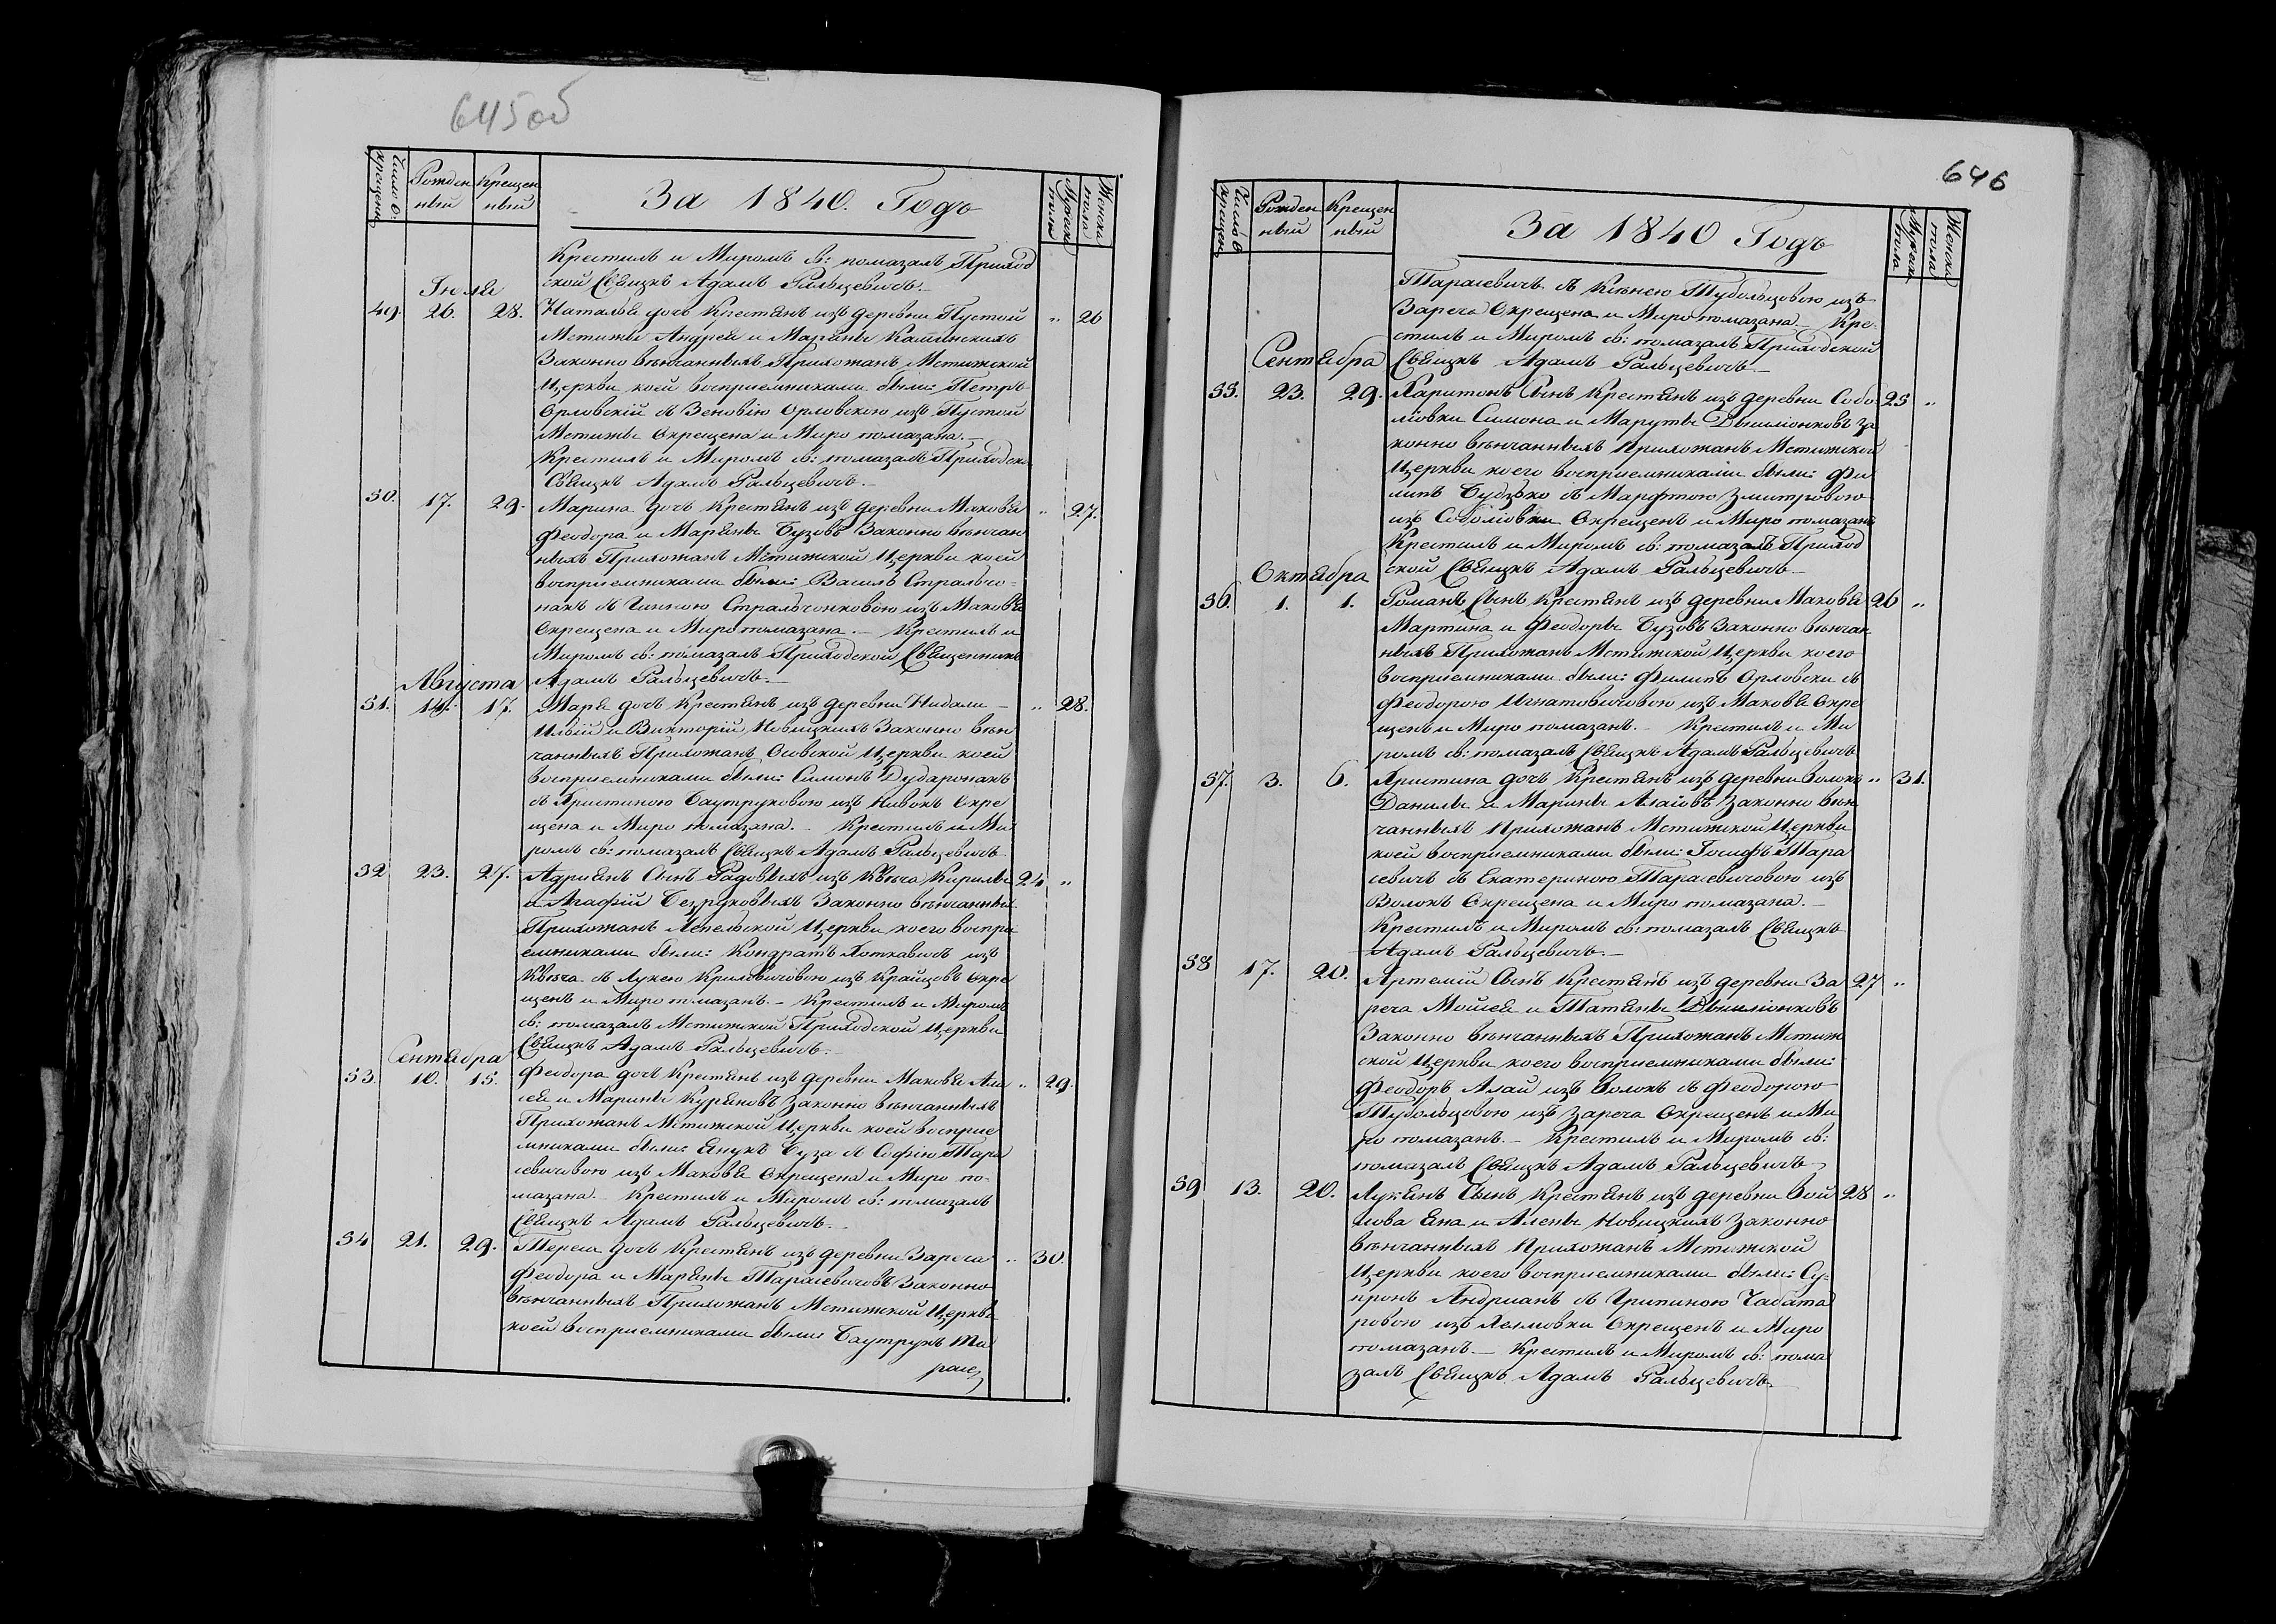 645об
Число
крещени
Рожден
ный
Крещен
ный
За 1840. Годъ
Мужеска
пола
Женска
пола
Крестилъ и Миромъ св: помазалъ Приход
ской Свящкъ Адамъ Гальцевичъ.
Июля
49. 26. 28. Наталья дочь Крестянъ изъ деревни Пустой „ 26
Мстижи Андрея и Маряны Каминскихъ
Законно вѣнчанныхъ Прихожанъ Мстижской
Церкви коей восприемниками были: Петръ
Орловскій съ Зеновіею Орловскою изъ Пустой
Мстижи Окрещена и Миро помазана.—
Крестилъ и Миромъ св: помазалъ Приходской
Свящкъ Адамъ Гальцевичъ.—
50. 17. 29. Марина дочь Крестянъ изъ деревни Маковья „ 27.
Феодора и Маряны Бузовъ Законно вѣнчан
ныхъ Прихожанъ Мстижской Церкви коей
восприемниками были: Василь Стральчо-
накъ съ Ганною Стральчонковою изъ Маковья
Окрещена и Миро помазана.— Крестилъ и
Миромъ св: помазалъ Приходской Священникъ
Августа Адамъ Гальцевичъ.—
51. 14. 17. Марья дочь Крестянъ изъ деревни Нидали — „ 28.
Ильи и Викторіи Новицкихъ Законно вѣн
чанныхъ Прихожанъ Осовской Церкви коей
восприемниками были: Симонъ Дударонакъ
съ Христиною Баутруковою изъ Нивокъ Окре
щена и Миро помазана.— Крестилъ и Ми
ромъ св: помазалъ Свящкъ Адамъ Гальцевичъ
52 23. 27. Адріянъ Сынъ Радовыхъ изъ Квяча Кирилы 24 „
и Агафіи Безруковыхъ Законно вѣнчанныхъ
Прихожанъ Лепельской Церкви коего воспри
емниками были: Кондратъ Хоткавичъ изъ
Квяча съ Лукею Крилевичовою изъ Крайцовъ Окре
щенъ и Миро помазанъ.— Крестилъ и Миромъ
св: помазалъ Мстижской Приходской Церкви
Сентября Свящкъ Адамъ Гальцевичъ.—
53. 10. 15. Феодора дочь Крестянъ изъ деревни Маковья Али „ 29.
сея и Марины Куряновъ Законно вѣнчанныхъ
Прихожанъ Мстижской Церкви коей восприе
мниками были: Янукъ Буза съ Софіею Тара
севичовою изъ Маковья Окрещена и Миро по-
мазана.— Крестилъ и Миромъ св: помазалъ
Свящкъ Адамъ Гальцевичъ.—
54 21. 29. Тереса дочь Крестянъ изъ деревни Заречья „ 30.
Феодора и Маряны Тарасевичовъ Законно
вѣнчанныхъ Прихожанъ Мстижской Церкви
коей восприемниками были: Баутрукъ Та
расе
646
Число
крещен
Рожден
ный
Крещен
ный
За 1840 Годъ
Мужеска
пола
Женска
пола
Тарасевичъ съ Ксенею Тубольцовою изъ
Зареча Окрещена и Миро помазана.— Кре-
стилъ и Миромъ св: помазалъ Приходской
Сентября Свящкъ Адамъ Гальцевичъ.—
55. 23. 29. Харитонъ Сынъ Крестянъ изъ деревни Собо 25 „
ліовки Симона и Маруты Дыліонковъ за
конно вѣнчанныхъ Прихожанъ Мстижской
Церкви коего восприемниками были: Фи
липъ Будзько съ Марфтою Змитровою
изъ Соболіовки Окрещенъ и Миро помазанъ
Крестилъ и Миромъ св: помазалъ Приход
Октября ской Свящкъ Адамъ Гальцевичъ—
56. 1. 1. Романъ Сынъ Крестянъ изъ деревни Маковья 26 „
Мартина и Феодоры Бузовъ Законно вѣнчан
ныхъ Прихожанъ Мстижской Церкви коего
восприемниками были: Филипъ Орловски съ
Феодорою Игнатовичовою изъ Маковья Окре
щенъ и Миро помазанъ.— Крестилъ и Ми
ромъ св: помазалъ Свящкъ Адамъ Гальцевичъ
57. 3. 6. Христина дочь Крестянъ изъ деревни Волокъ „ 31.
Данилы и Марины Алаіовъ Законно вѣн
чанныхъ Прихожанъ Мстижской Церкви
коей восприемниками были: Іосифъ Тара
севичъ съ Екатериною Тарасевичовою изъ
Волокъ Окрещена и Миро помазана.—
Крестилъ и Миромъ св: помазалъ Свящкъ
Адамъ Гальцевичъ.—
58 17. 20. Артемій Сынъ Крестянъ изъ деревни За 27 „
реча Мойсея и Татяны Дыліонковъ
Законно вѣнчанныхъ Прихожанъ Мстиж
ской Церкви коего восприемниками были:
Феодоръ Алай изъ Волокъ съ Феодорою
Тубольцовою изъ Зареча Окрещенъ и Ми
ро помазанъ.— Крестилъ и Миромъ св:
помазалъ Свящкъ Адамъ Гальцевичъ
59 13. 20. Лукянъ Сынъ Крестянъ изъ деревни Вой 28 „
лова Яна и Алены Новицкихъ Законно
вѣнчанныхъ Прихожанъ Мстижской
Церкви коего восприемниками были: Су-
пронъ Андріанъ съ Грипиною Чабата
ровою изъ Окрещенъ и Миро
помазанъ.— Крестилъ и Миромъ св: пома
залъ Свящкъ Адамъ Гальцевичъ.